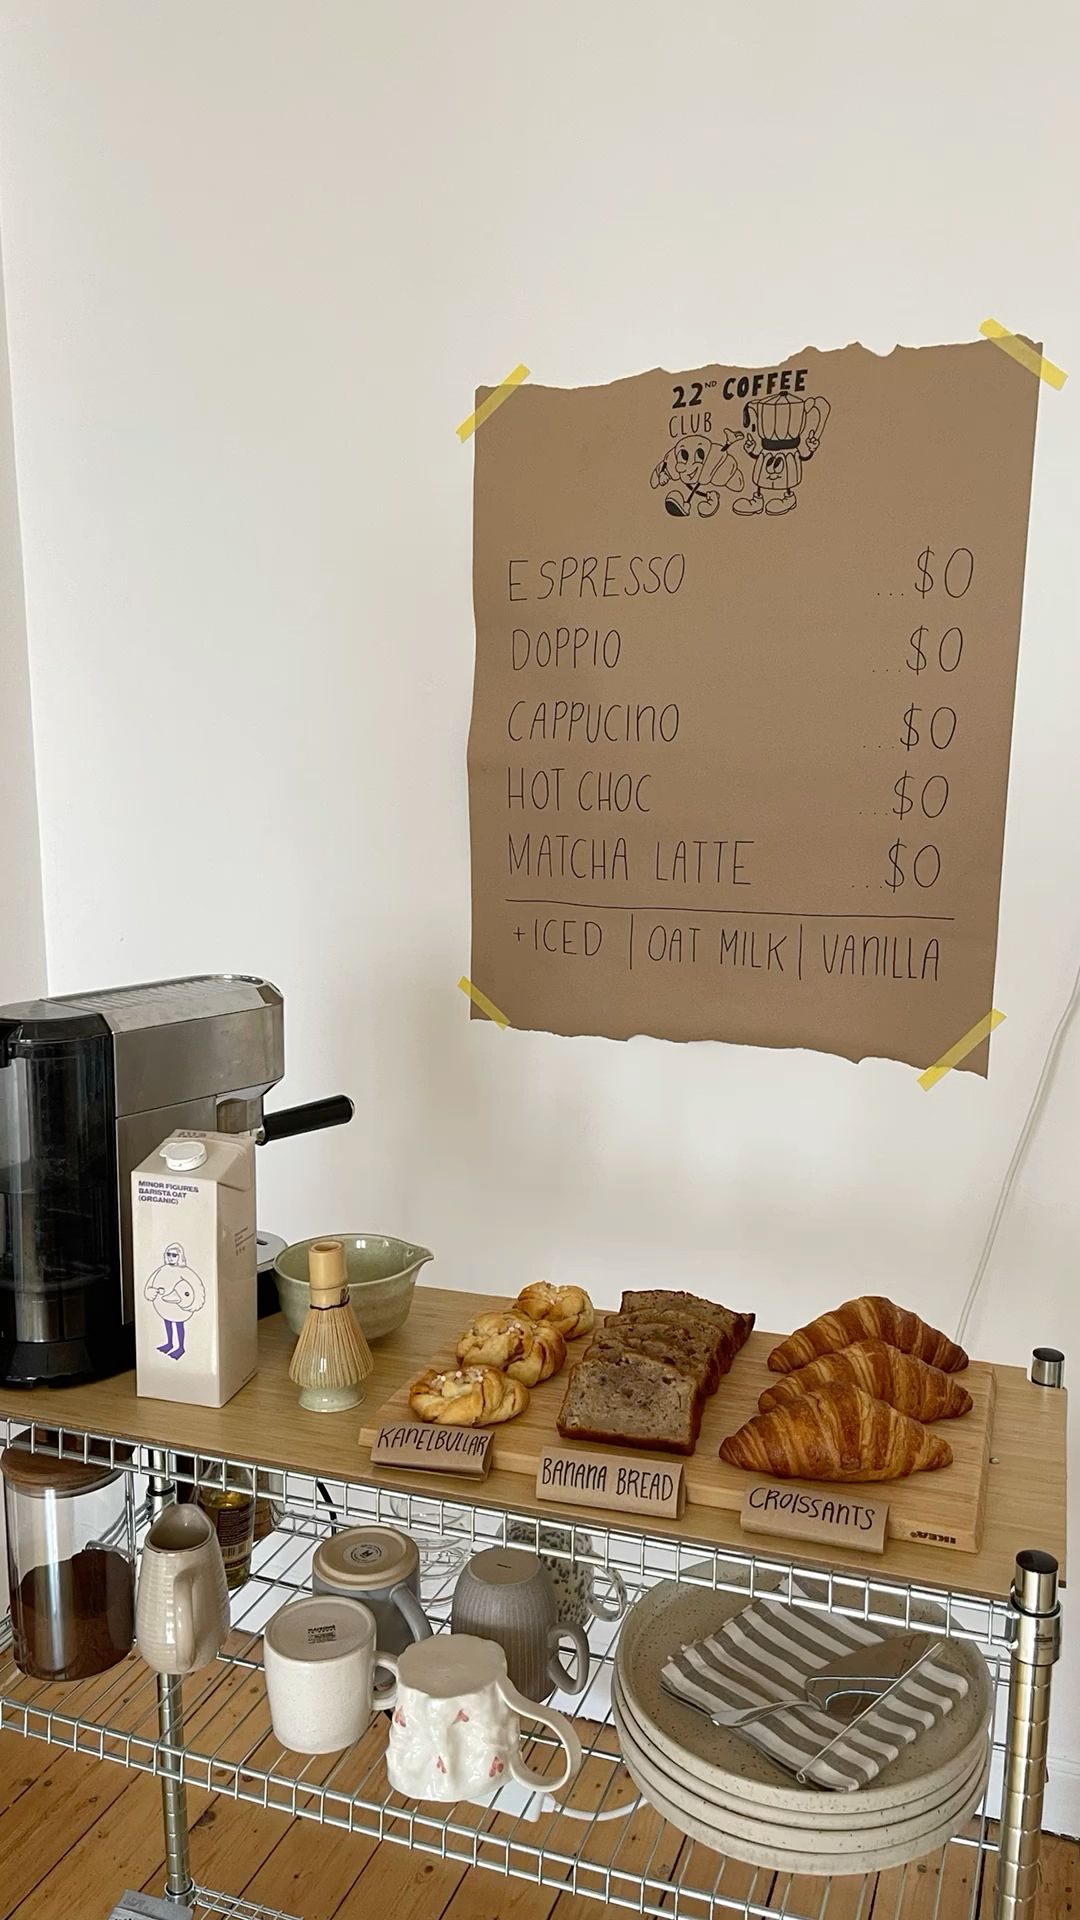 22ND COFFEE
CLUB
ESPRESSO ...$0
DOPPIO ...$0
CAPPUCINO ...$0
HOT CHOC ...$0
MATCHA LATTE ...$0
+ICED | OAT MILK | VANILLA
MINOR FIGURES
BARISTA OAT
(ORGANIC)
KANELBULLAR
BANANA BREAD
CROISSANTS
IKEA